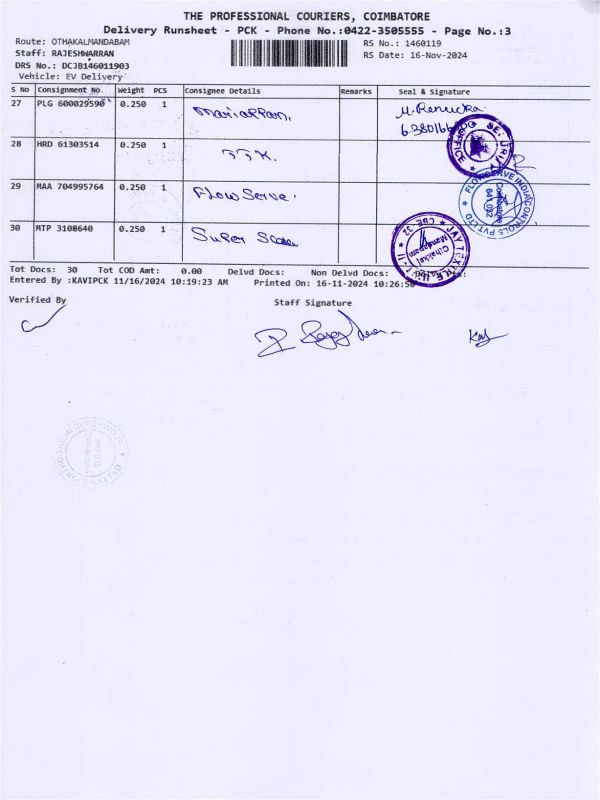 THE PROFESSIONAL COURIERS, COIMBATORE
Delivery Runsheet - PCK - Phone No.:0422-3505555 - Page No.:3
Route: OTHAKALMANDABAM
RS No.: 1460119
Staff: RAJESHWARRAN
RS Date: 16-Nov-2024
DRS No.: DCJB146011903
Vehicle: EV Delivery
S No Consignment No. Weight PCS Consignee Details Remarks Seal & Signature
27 PLG 600029590 0.250 1 Mariappan. M. Renuka
28 HRD 61303514 0.250 1 TTK.
29 MAA 704995764 0.250 1 Flow Serve. FLOWSERVE INDIA CONTROLS PVT LTD Coimbatore 641 032
30 MTP 3108640 0.250 1 Super
Tot Docs: 30 Tot COD Amt: 0.00 Delvd Docs: Non Delvd Docs:
Entered By :KAVIPCK 11/16/2024 10:19:23 AM Printed On: 16-11-2024 10:26:50
Verified By
Staff Signature